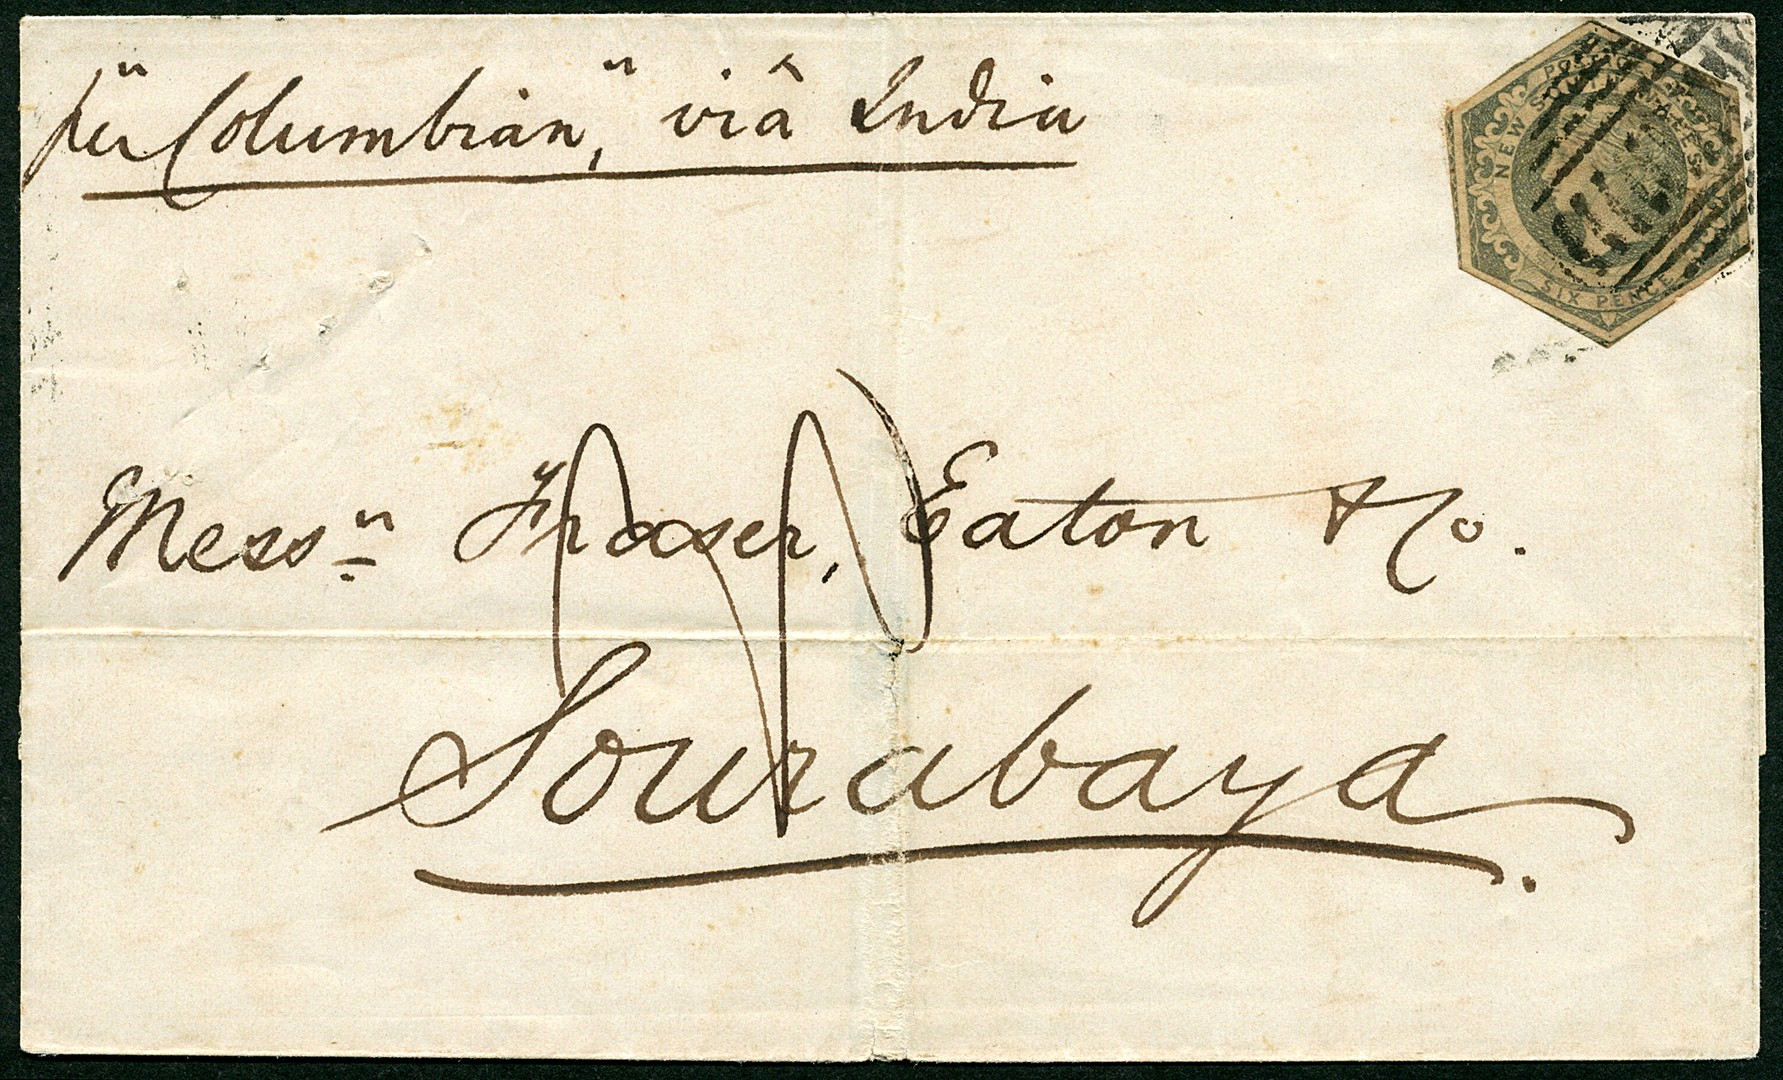 per "Columbian", viâ India
POSTAGE
NEW SOUTH WALES
SIX PENCE
Messrs Fraser, Eaton & Co.
Sourabaya.